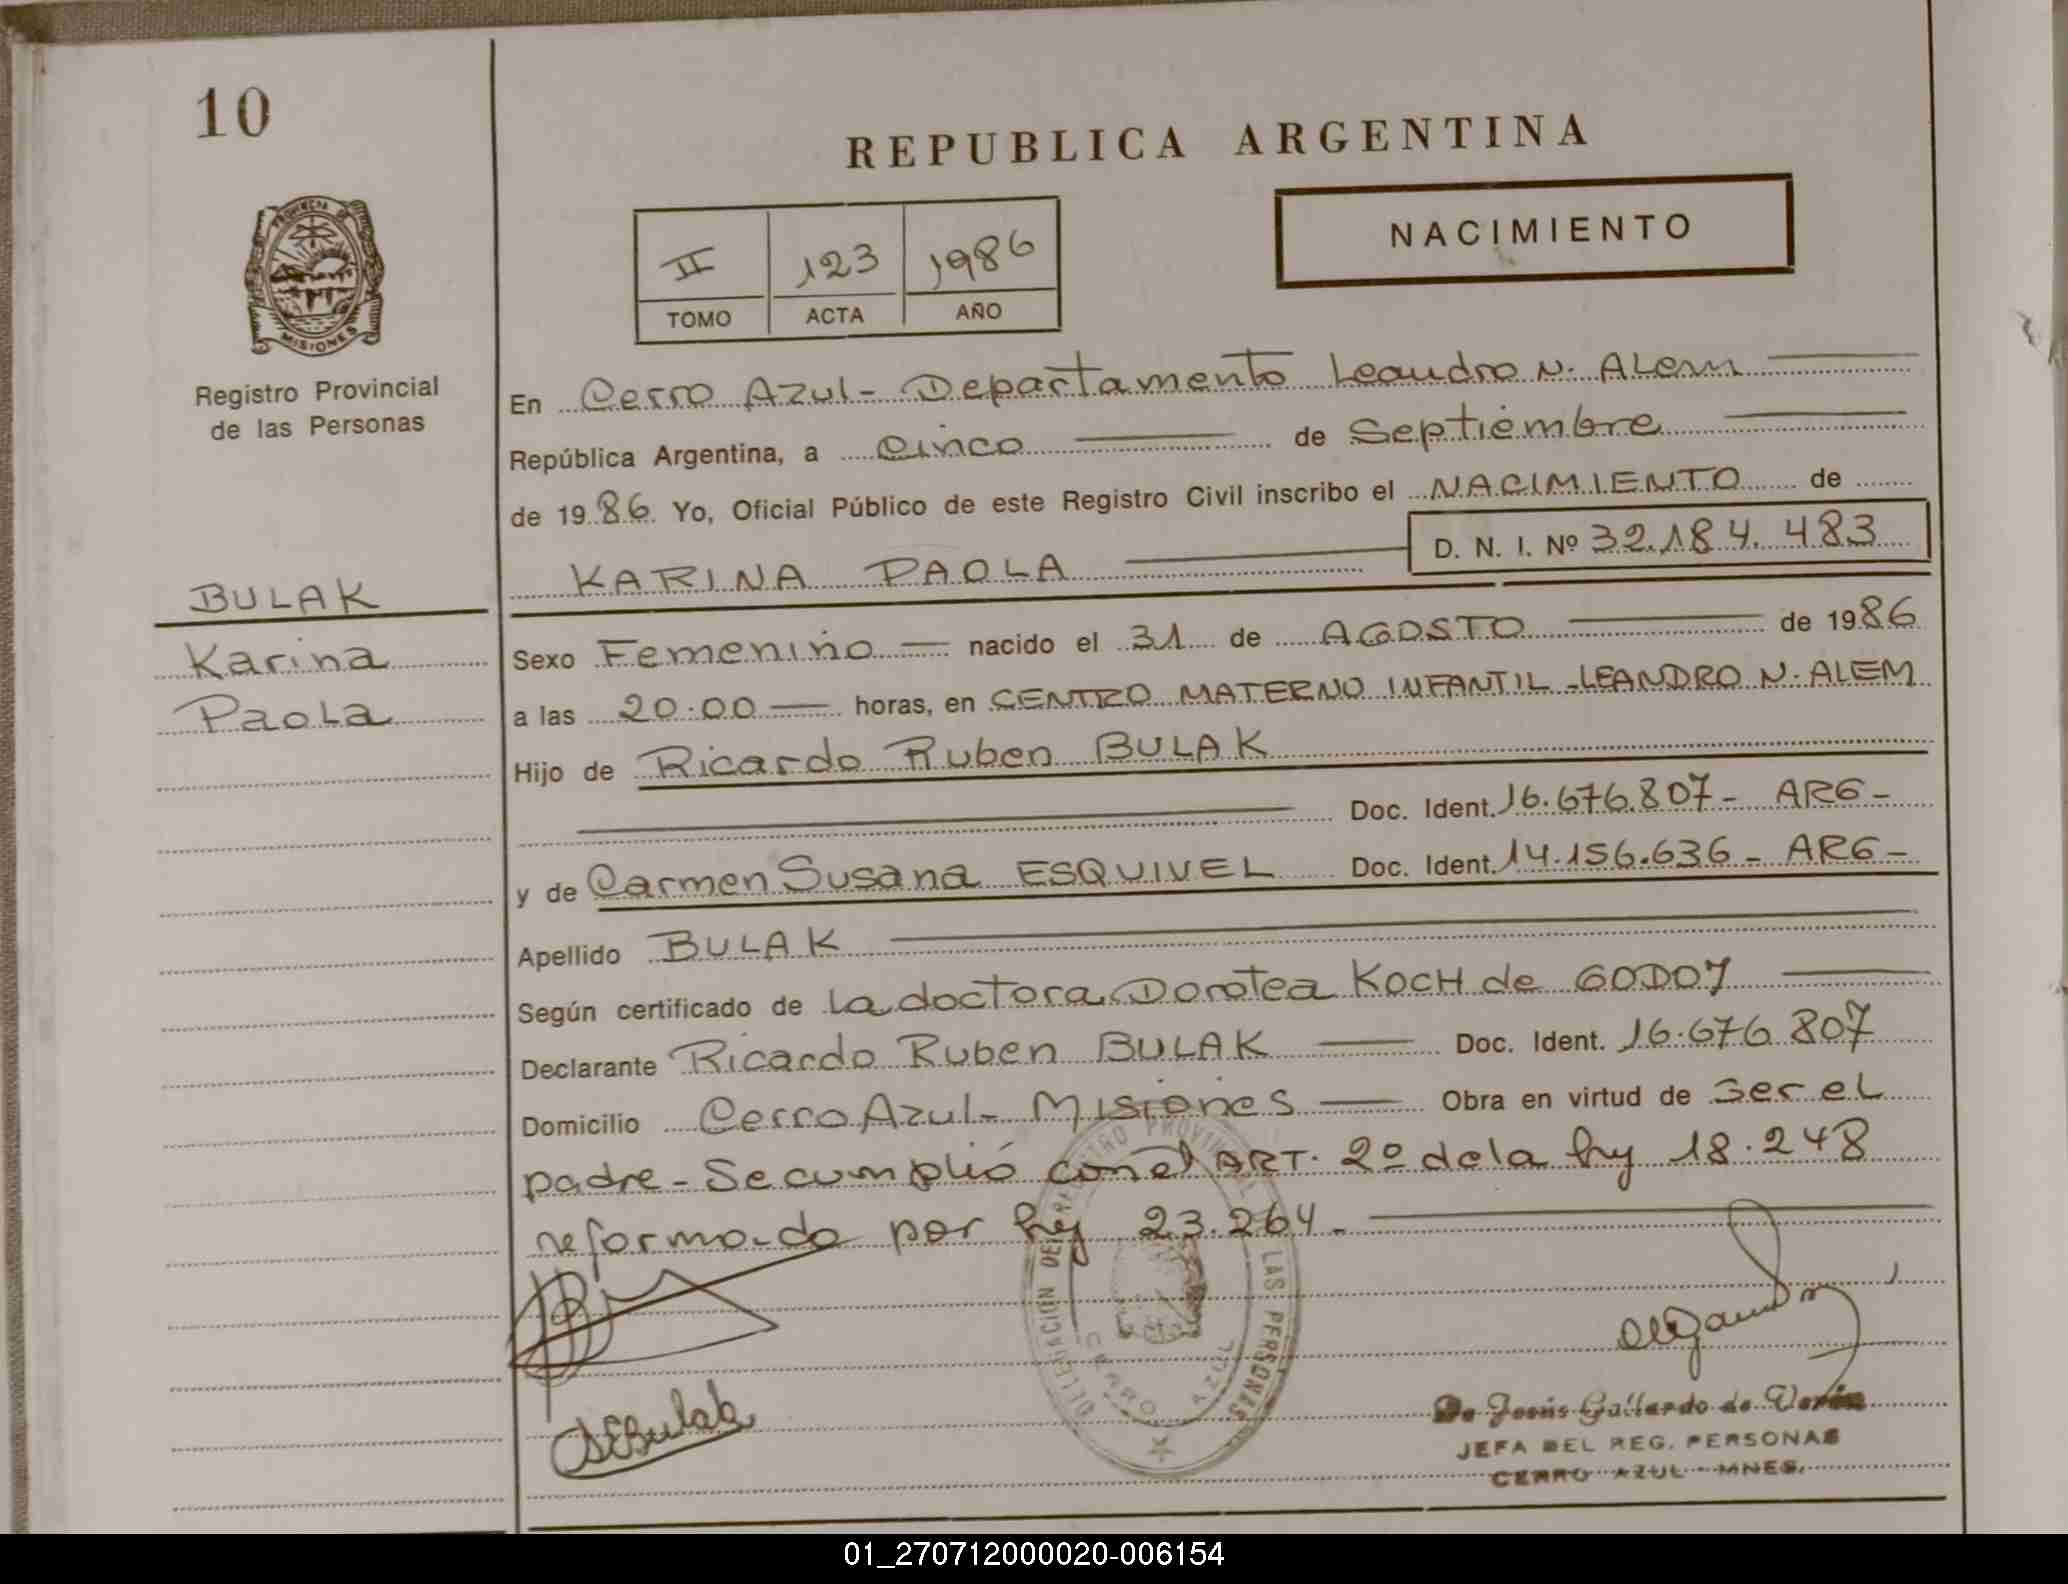 10
REPUBLICA ARGENTINA
PROVINCIA DE
MISIONES
NACIMIENTO
II 123 1986
TOMO ACTA AÑO
Registro Provincial
de las Personas
En Cerro Azul - Departamento Leandro N. ALem
República Argentina, a cinco de Septiembre
de 1986. Yo, Oficial Público de este Registro Civil inscribo el NACIMIENTO de
KARINA PAOLA D. N. I. Nº 32.184.483
BULAK
Karina
Paola
Sexo Femenino nacido el 31 de AGOSTO de 1986
a las 20.00 horas, en CENTRO MATERNO INFANTIL - LEANDRO N. ALEM
Hijo de Ricardo Ruben BULAK
Doc. Ident. 16.676.807 - ARG -
y de Carmen Susana ESQUIVEL Doc. Ident. 14.156.636 - ARG -
Apellido BULAK
Según certificado de la doctora Dorotea KOCH de GODOY
Declarante Ricardo Ruben BULAK Doc. Ident. 16.676.807
Domicilio Cerro Azul - Misiones Obra en virtud de ser el
padre - Se cumplió con el ART. 2º de la ley 18.248
reformada por ley 23.264 -
DELEGACION DEL REGISTRO PROVINCIAL LAS PERSONAS
CERRO AZUL
SEBulak
De Jesús Gallardo de Verón
JEFA DEL REG. PERSONAS
CERRO AZUL - MNES.
01_270712000020-006154